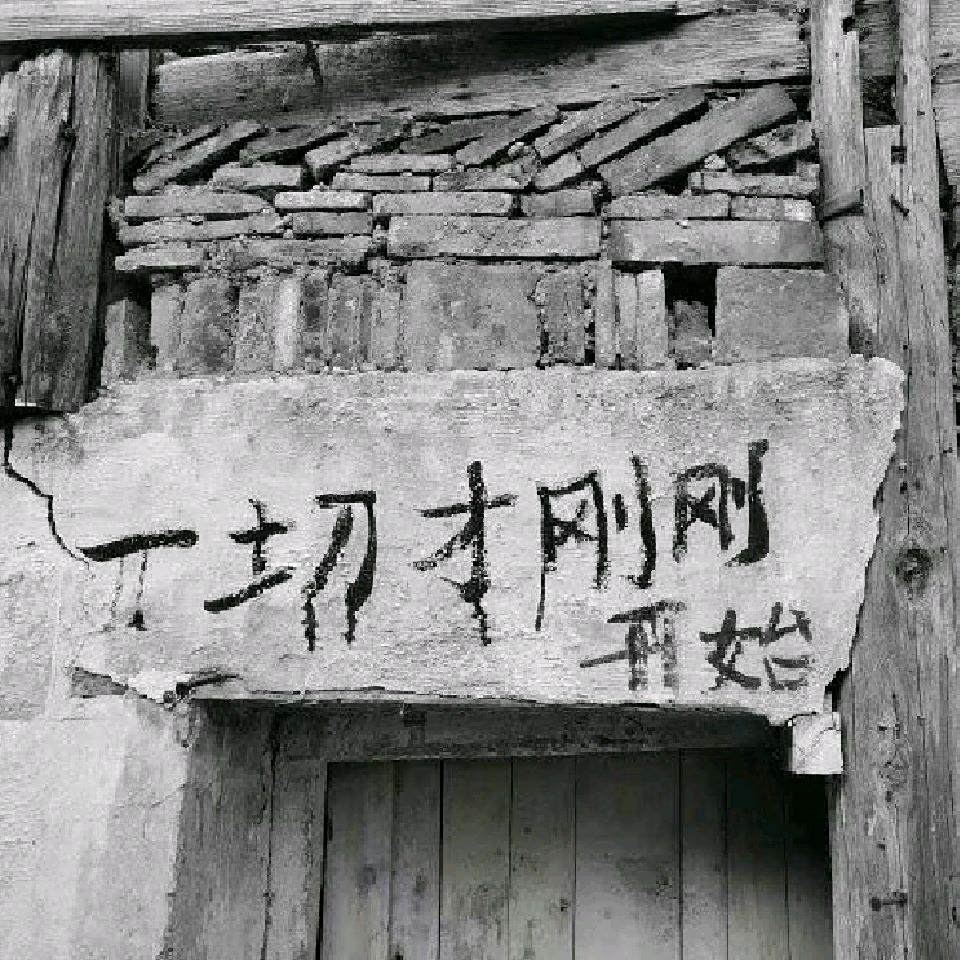 一切才刚刚
开始